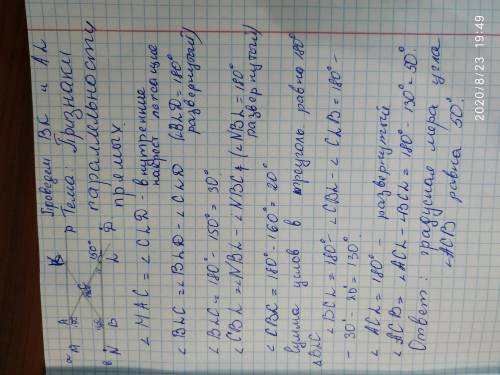 Проведем BC и AL
Тема: Признаки
параллельности
прямых.
a
A
P
150°
b
N B L D
∠ MAC = ∠ CLD - внутренние
накрест лежащие
∠ BLC = ∠ BLD - ∠ CLD (∠BLD = 180°
развернутый)
∠ BLC = 180° - 150° = 30°
∠ CBL = ∠ NBL - ∠ NBC, (∠ NBL = 180°
развернутый)
∠ CBL = 180° - 160° = 20°
Сумма углов в треуголь равна 180°
∆ BLC
∠ BCL = 180° - ∠ CBL - ∠ CLB = 180° -
- 30° - 20° = 130°
∠ ACL = 180° - развернутый
∠ ACB = ∠ ACL - ∠ BCL = 180° - 130° = 50°
Ответ: градусная мера угла
∠ ACB равна 50°
2020/8/23 19:49